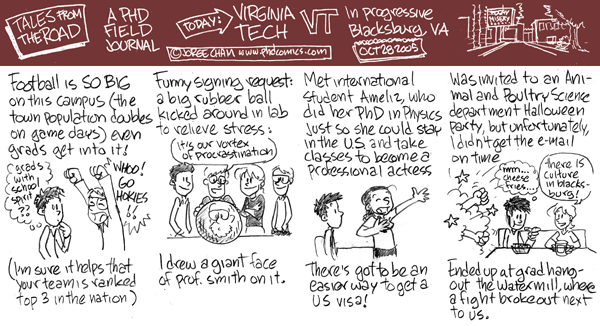 TALES FROM
THE ROAD
A PHD
FIELD
JOURNAL
TODAY:
VIRGINIA
TECH
VT
In Progressive
Blacksburg, VA
OCT 28 2005
© JORGE CHAM www.phdcomics.com
Football is SO BIG
on this campus (the
town population doubles
on game days) even
grads get into it!
grads
with
school
spirit
??
WHOO!
GO
HOKIES
!!
(I'm sure it helps that
your team is ranked
top 3 in the nation)
Funny signing request:
a big rubber ball
kicked around in lab
to relieve stress:
it's our vortex
of procrastination
I drew a giant face
of prof. smith on it.
Met international
student Ameliz, who
did her PhD in Physics
just so she could stay
in the U.S. and take
classes to become a
professional actress
There's got to be an
easier way to get a
US visa!
Was invited to an Ani-
mal and Poultry Science
department Halloween
party, but unfortunately,
I didn't get the e-mail
on time
mmm...
cheese
fries...
there is
culture
in blacks-
burg!
Ended up at grad hang-
out the Watermill, where
a fight broke out next
to us.